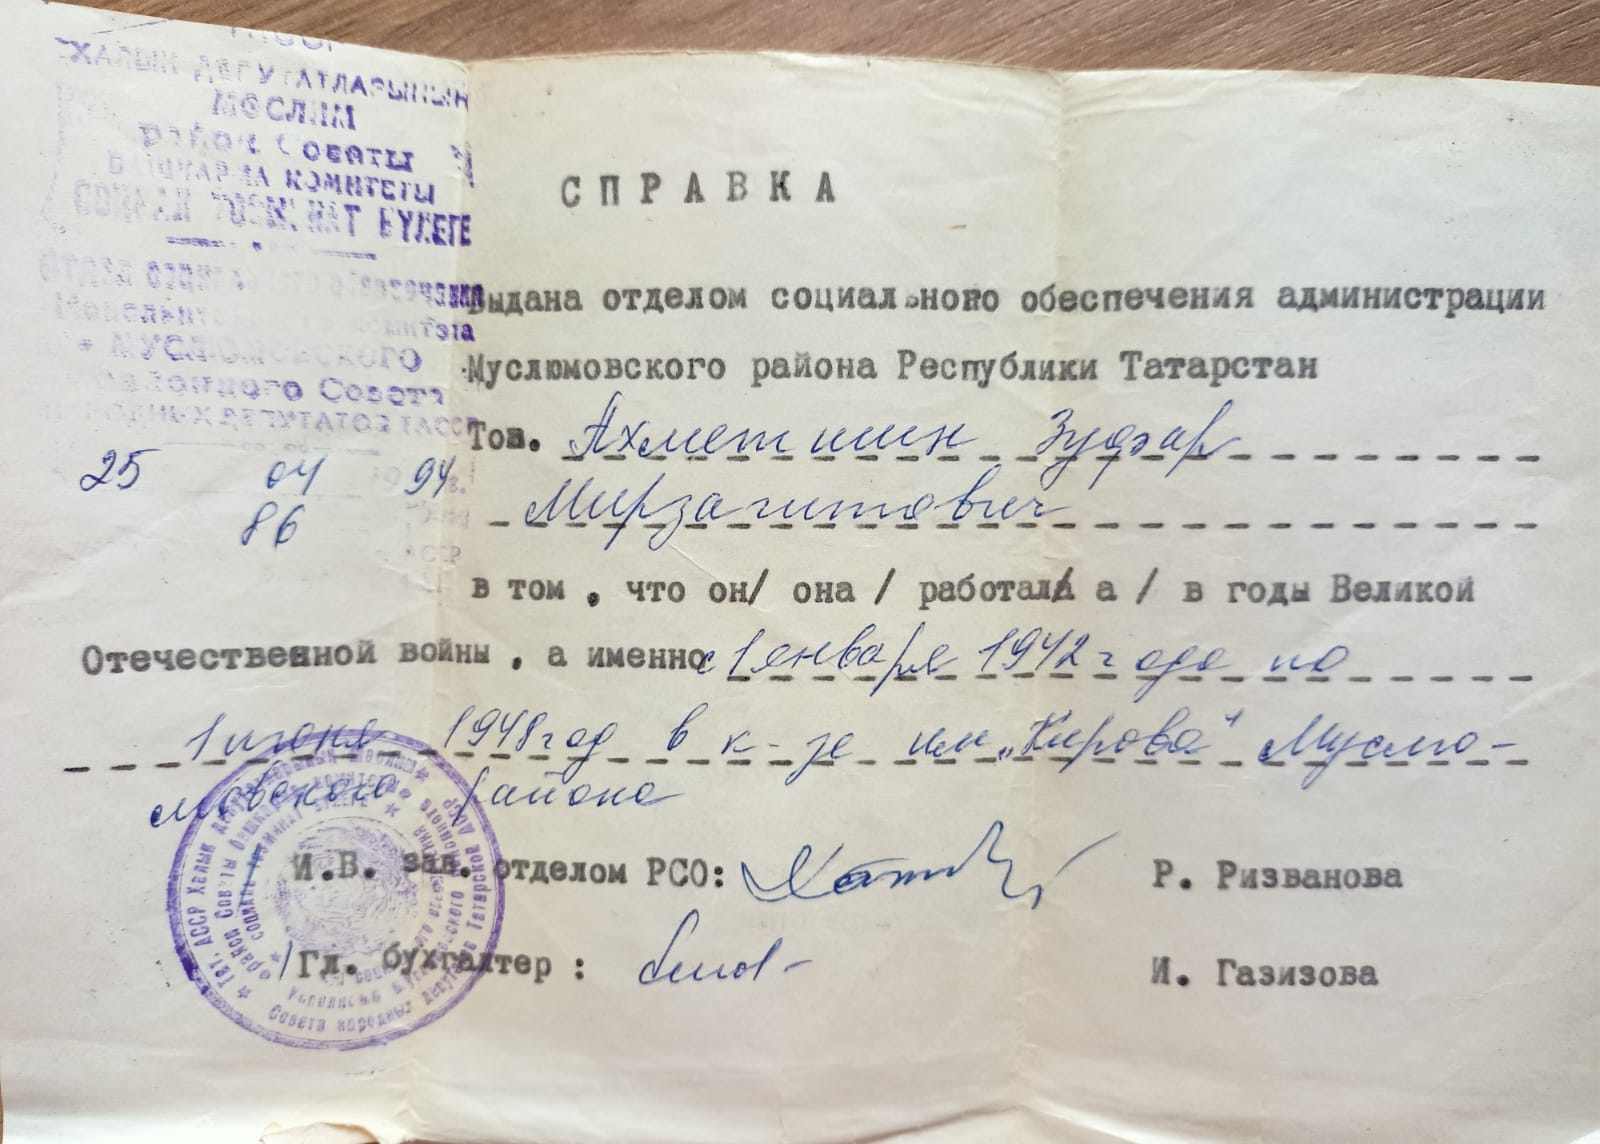 ТАССР
ХАЛЫК ДЕПУТАТЛАРЫНЫҢ
МӨСЛИМ
район Советы
БАШКАРМА КОМИТЕТЫ
СОЦИАЛЬ ТӘЭМИНАТ БҮЛЕГЕ
Отдел социального обеспечения
Исполнительного комитета
МУСЛЮМОВСКОГО
районного Совета
НАРОДНЫХ ДЕПУТАТОВ ТАССР
25 04 1994г.
86
СПРАВКА
Выдана отделом социального обеспечения администрации
Муслюмовского района Республики Татарстан
Тов. Ахметшин Зуфар
Мирзагитович
в том , что он/ она / работал/ а / в годы Великой
Отечественной войны , а именно с 1 января 1942 года по
1 июня 1948 год в к-зе им „Кирова" Муслю-
мовского района
И.В. зав. отделом РСО: Р. Ризванова
/Гл. бухгалтер : И. Газизова
Тат. АССР Халык депутатларының Мөслим
район Советы Башкарма комитеты
социаль тәэминат бүлеге
Совета народных депутатов Татарской АССР